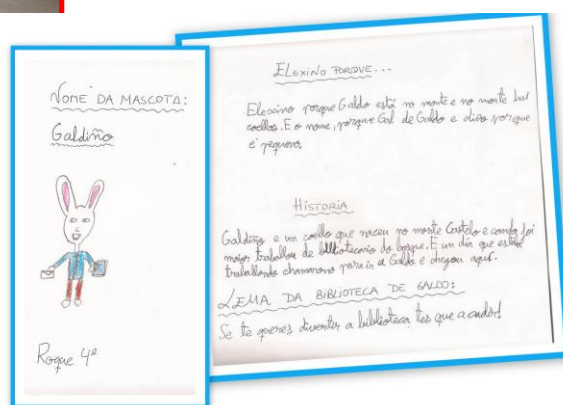 NOME DA MASCOTA:
Galdiño
Roque 4º
ELEXINO PORQUE...
Elexino porque Galdo está no monte e no monte hai
coellos. E o nome, porque Gal de Galdo e diño porque
é pequeno.
HISTORIA
Galdiño e un coello que naceu no monte Castelo e cando foi
maior traballou de bibliotecario do bosque. E un dia que estaba
traballando chamarono para ir a Galdo e chegou aquí.
LEMA DA BIBLIOTECA DE GALDO:
Se te queres divertir a biblioteca tes que acudir!